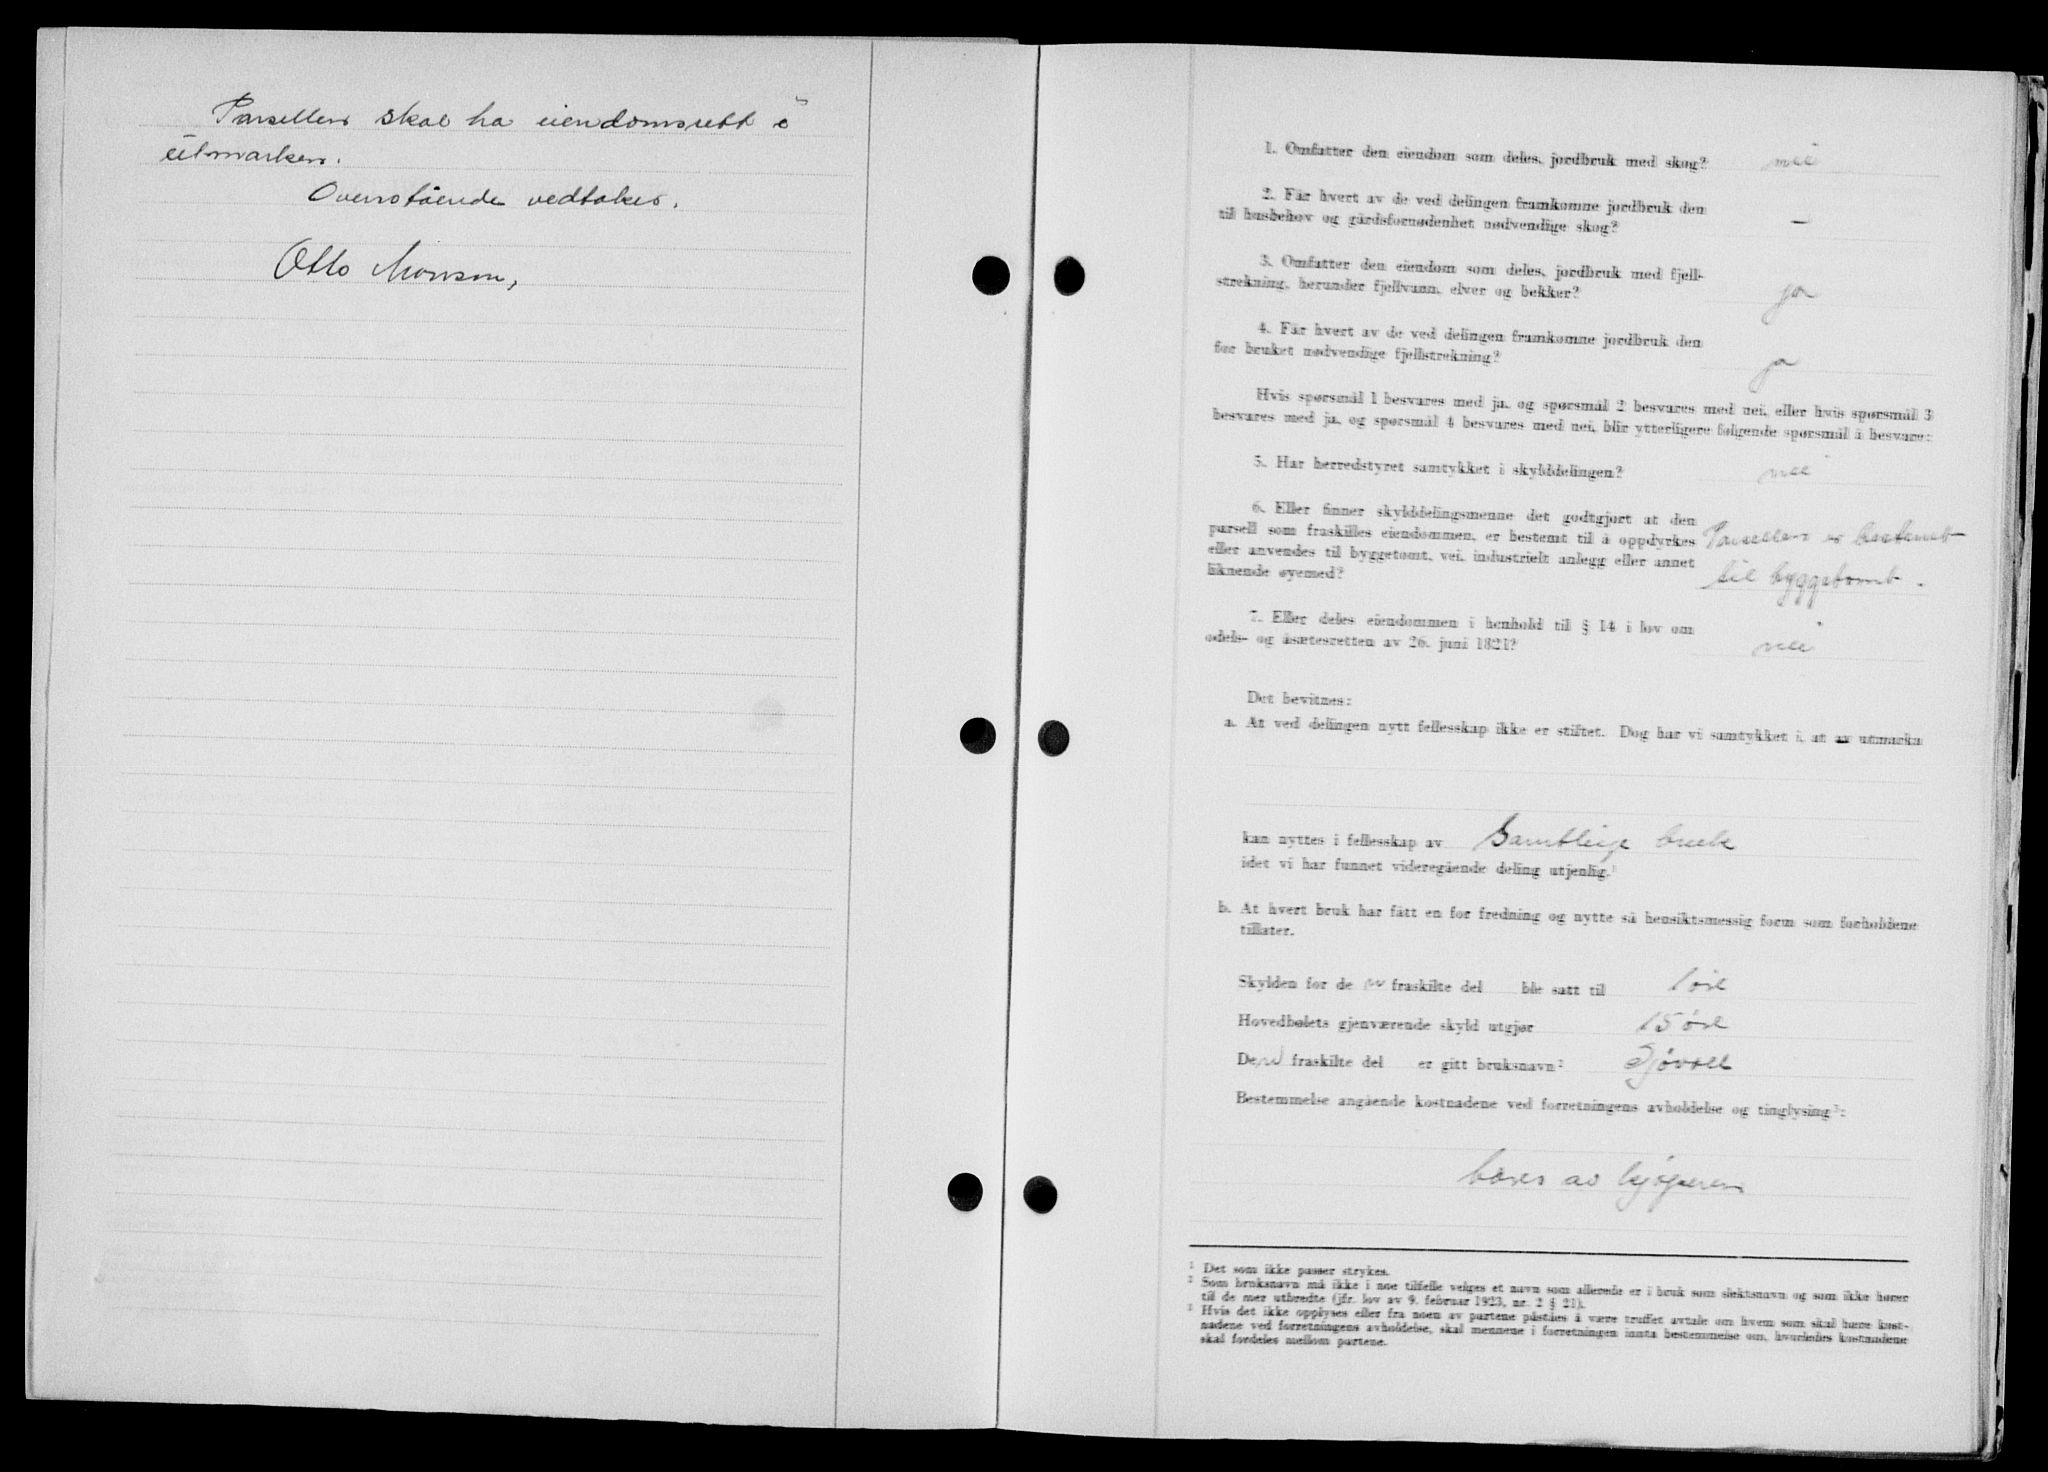 Parsellen skal ha eiendomsrett i
utmarken.
Ovenstående vedtakes.
Otto Monsen,
1. Omfatter den eiendom som deles, jordbruk med skog? nei
2. Får hvert av de ved delingen framkomne jordbruk den
til husbehov og gårdsfornødenhet nødvendige skog? –
3. Omfatter den eiendom som deles, jordbruk med fjell-
strekning, herunder fjellvann, elver og bekker? ja
4. Får hvert av de ved delingen framkomne jordbruk den
for bruket nødvendige fjellstrekning? ja
Hvis spørsmål 1 besvares med ja, og spørsmål 2 besvares med nei, eller hvis spørsmål 3
besvares med ja, og spørsmål 4 besvares med nei, blir ytterligere følgende spørsmål å besvare:
5. Har herredstyret samtykket i skylddelingen? nei
6. Eller finner skylddelingsmenne det godtgjort at den
parsell som fraskilles eiendommen, er bestemt til å oppdyrkes Parsellen er bestemt
eller anvendes til byggetomt, vei, industrielt anlegg eller annet
liknende øyemed? til byggetomt.
7. Eller deles eiendommen i henhold til § 14 i lov om
odels- og åsetesretten av 26. juni 1821? nei
Det bevitnes:
a. At ved delingen nytt fellesskap ikke er stiftet. Dog har vi samtykket i, at av utmarka
kan nyttes i fellesskap av Samtlige bruk
idet vi har funnet videregående deling utjenlig.¹
b. At hvert bruk har fått en for fredning og nytte så hensiktsmessig form som forholdene
tillater.
Skylden for de n fraskilte del ble satt til 1 øre
Hovedbølets gjenværende skyld utgjør 15 øre
De n fraskilte del er gitt bruksnavn² Sjøvoll
Bestemmelse angående kostnadene ved forretningens avholdelse og tinglysing³:
bæres av kjøperen
¹ Det som ikke passer strykes.
² Som bruksnavn må ikke i noe tilfelle velges et navn som allerede er i bruk som slektsnavn og som ikke hører
til de mer utbredte (jfr. lov av 9. februar 1923, nr. 2 § 21).
³ Hvis det ikke opplyses eller fra noen av partene påståes å være truffet avtale om hvem som skal bære kost-
nadene ved forretningens avholdelse, skal mennene i forretningen innta bestemmelse om, hvorledes kostnadene
skal fordeles mellom partene.